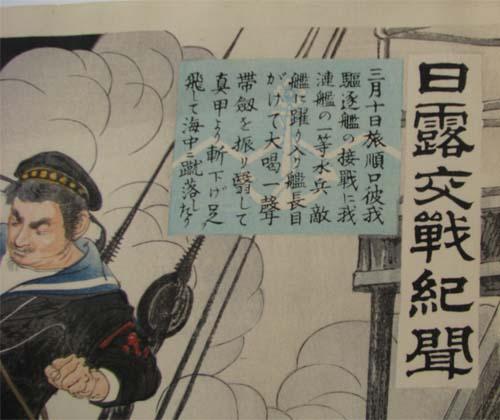 日露交戰紀聞
三月十日旅順口彼我
驅逐艦の接戰に我
漣艦の一等水兵、敵
艦に躍り入り艦長目
がけて大喝一聲
帶劔を振り翳して
真甲より斬下げ足
飛して海中ニ蹴落したり